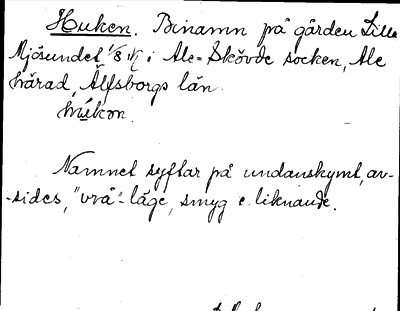 Huken. Binamn på gården Lilla
Mjösundet 1/8 mtl i Ale-Skövde socken, Ale
härad, Älfsborgs län.
húkon
Namnet syftar på undanskymt, av-
-sides, "vrå"-läge, smyg e. liknande.